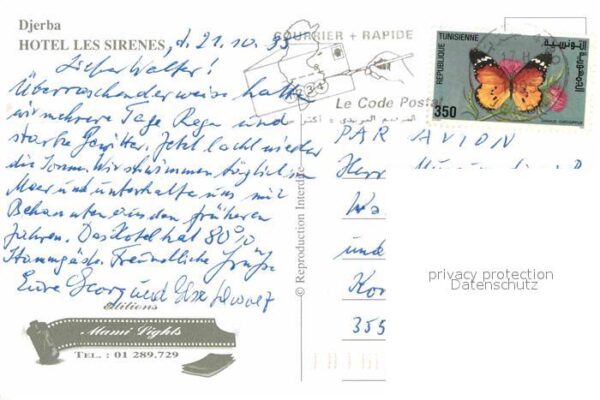 Djerba
HOTEL LES SIRENES, d. 21.10.95
Lieber Walter!
Überraschenderweise hatten
wir mehrere Tage Regen und
starke Gewitter. Jetzt lacht wieder
die Sonne. Wir schwimmen täglich im
Meer und unterhalten uns mit
Bekannten aus den früheren
Jahren. Das Hotel hat 80%
Stammgäste. Freundliche Grüße
Eure Georg und
editions
Mami Lights
TEL. : 01 289.729
© Reproduction Interdite
COURRIER + RAPIDE
Le Code Postal
REPUBLIQUE TUNISIENNE
350
PAR AVION
Herr
und
355
privacy protection
Datenschutz